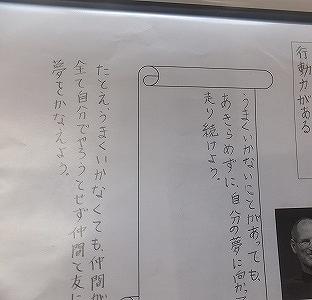 行動力がある
うまくいかないことがあっても、
あきらめずに、自分の夢に向かって
走り続けよう。
たとえ、うまくいかなくても、仲間が
全て自分でやろうとせず仲間と友に
夢をかなえよう。